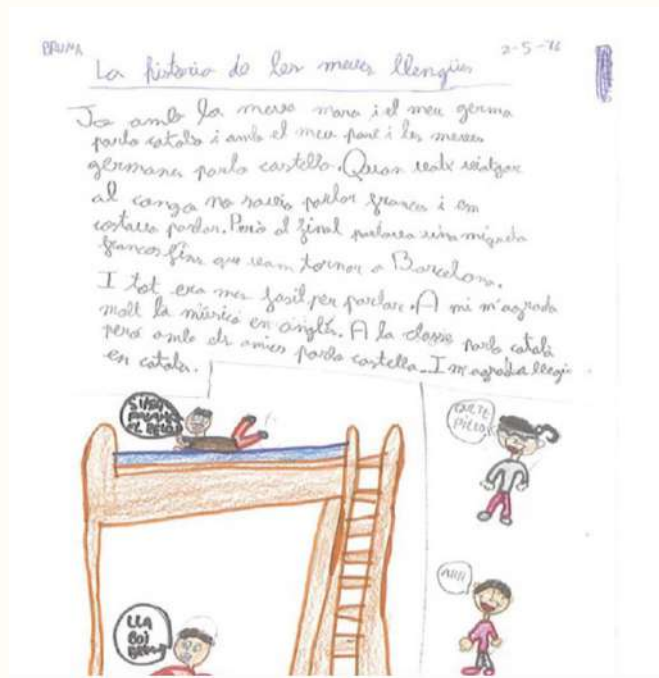 BRUNA
2-5-16
La historia de les meves llengües
Jo amb la meva mara i el meu germa
parlo catala i amb el meu pare i les meves
germanes parlo castello. Quan vealx viatgar
al congo no savia parlar frances i em
costava parlar. Però al final parlava una migueta
frances fins que vam tornar a Barcelona.
I tot era mes fasil per parlar. A mi m'agrada
molt la música en anglés. A la classe parlo català
però amb els amics parlo castella. I m'agrada llegir
en catala.
QUE TE
PILLO
AIIII
LLA
BOI